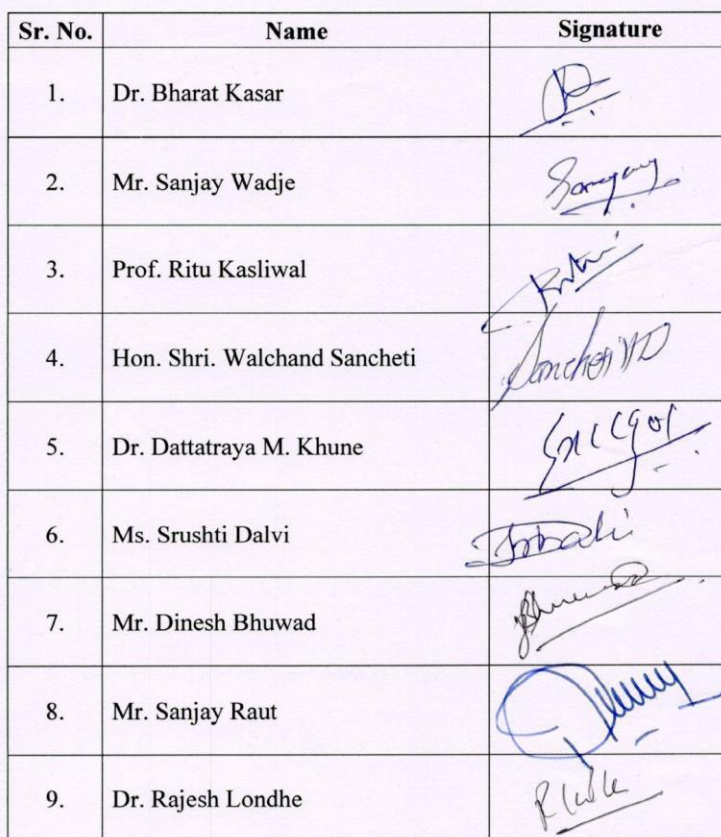 Sr. No. Name Signature
1. Dr. Bharat Kasar
2. Mr. Sanjay Wadje
3. Prof. Ritu Kasliwal
4. Hon. Shri. Walchand Sancheti Sancheti VD
5. Dr. Dattatraya M. Khune
6. Ms. Srushti Dalvi
7. Mr. Dinesh Bhuwad
8. Mr. Sanjay Raut
9. Dr. Rajesh Londhe